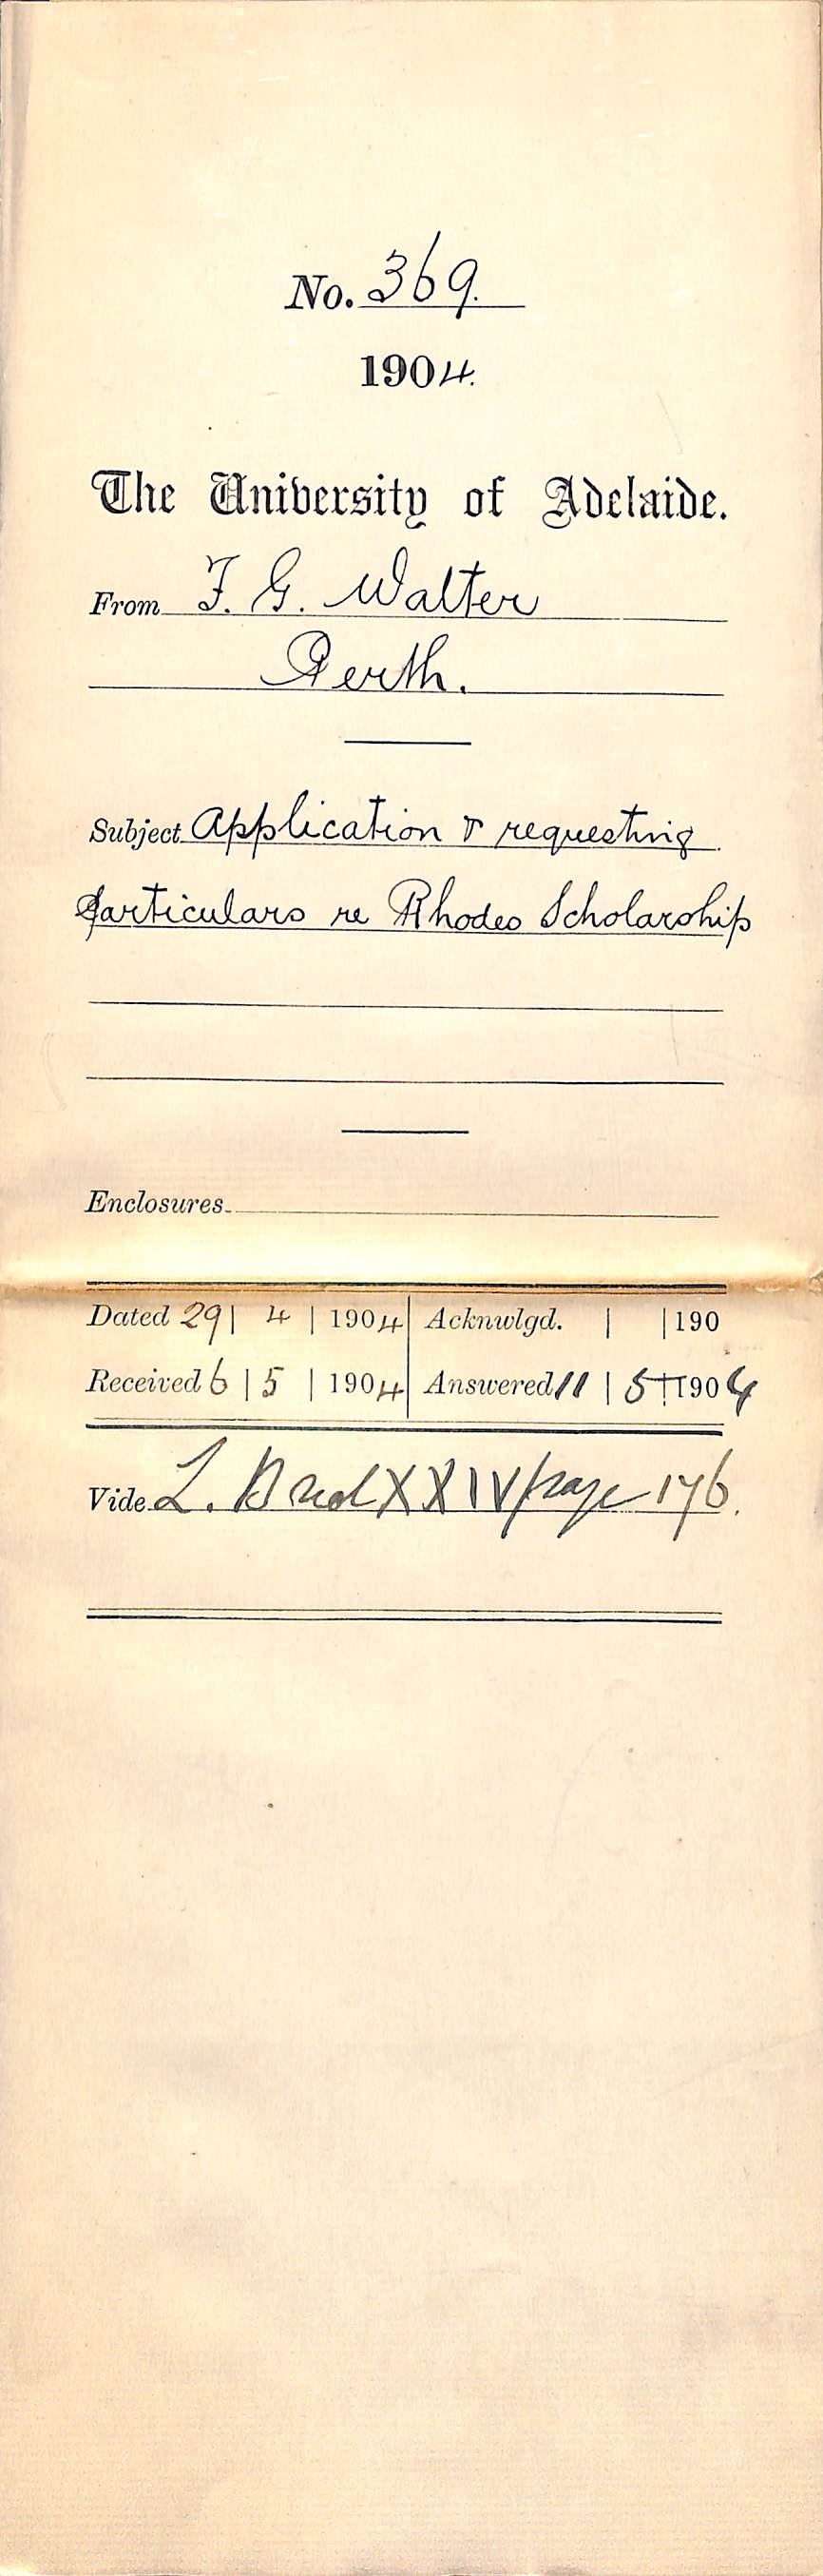 No. 369.
1904.
The University of Adelaide.
From F. G. Walter
Perth.
Subject Application & requesting
particulars re Rhodes Scholarship
Enclosures
Dated 29 | 4 | 1904 Acknwlgd. | | 190
Received 6 | 5 | 1904 Answered 11 | 5 | 1904
Vide L. XXIV page 176.